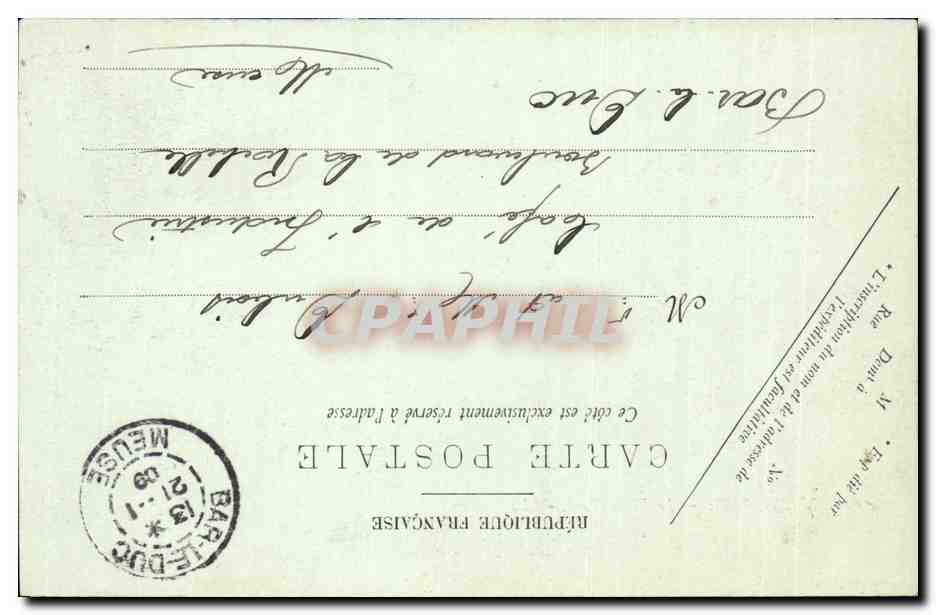 RÉPUBLIQUE FRANÇAISE
CARTE POSTALE
Ce côté est exclusivement réservé à l'adresse
* Expédié par
M
Demt à
Rue No
* L'inscription du nom et de l'adresse de
l'expéditeur est facultative
BAR-LE-DUC
13 - 1
21
09
MEUSE
M. et Me Dubois
Café de l'Industrie
Boulevard de la Rochelle
Bar-le-Duc
Meuse
CPAPHIL